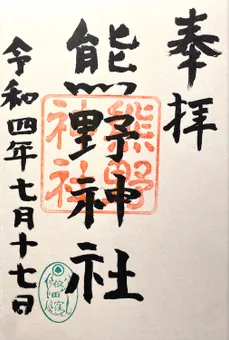 奉拝
熊野神社
熊野神社
令和四年七月十七日